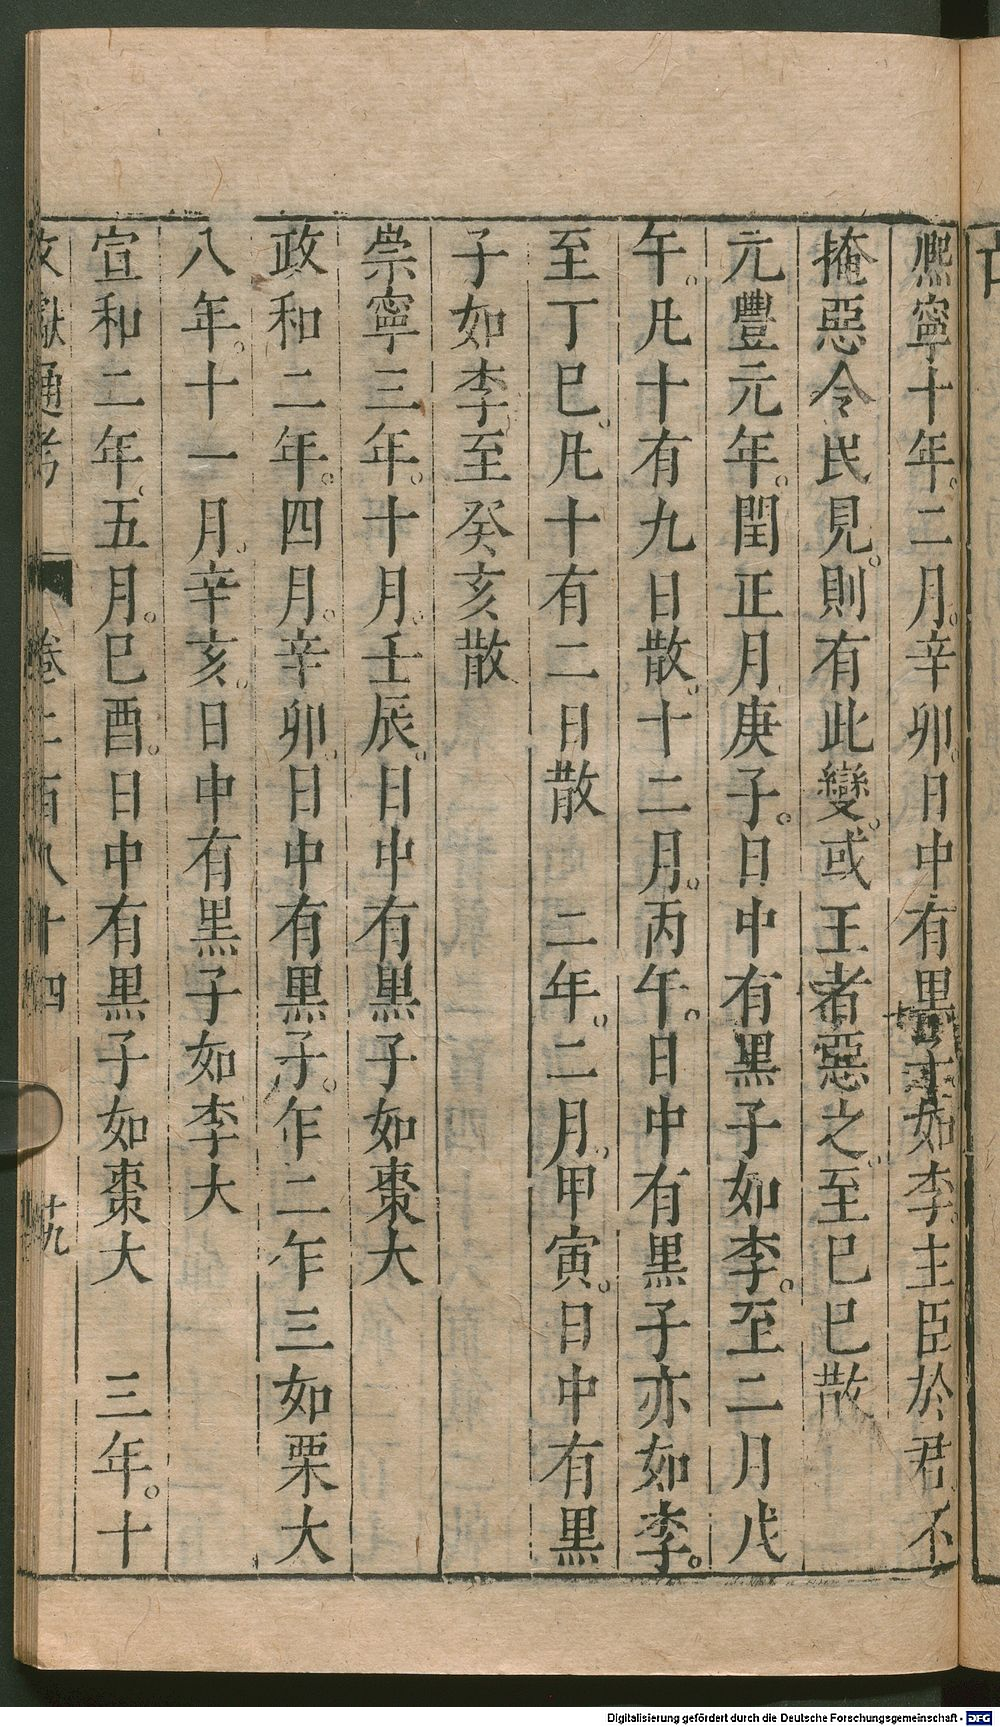 熈寧十年二月辛卯日中有黒子如李主臣於君不
掩惡令民見則有此變或王者惡之至巳巳散
元豐元年閏正月庚子日中有黒子如李至二月戊
午凡十有九日散十二月丙午日中有黒子亦如李
至丁巳凡十有二日散 二年二月甲寅日中有黒
子如李至癸亥散
崇寧三年十月壬辰日中有黒子如棗大
政和二年四月辛卯日中有黒子乍二乍三如栗大
八年十一月辛亥日中有黒子如李大
宣和二年五月巳酉日中有黒子如棗大 三年十
文獻通考 卷二百八十四 十九
Digitalisierung gefördert durch die Deutsche Forschungsgemeinschaft - DFG